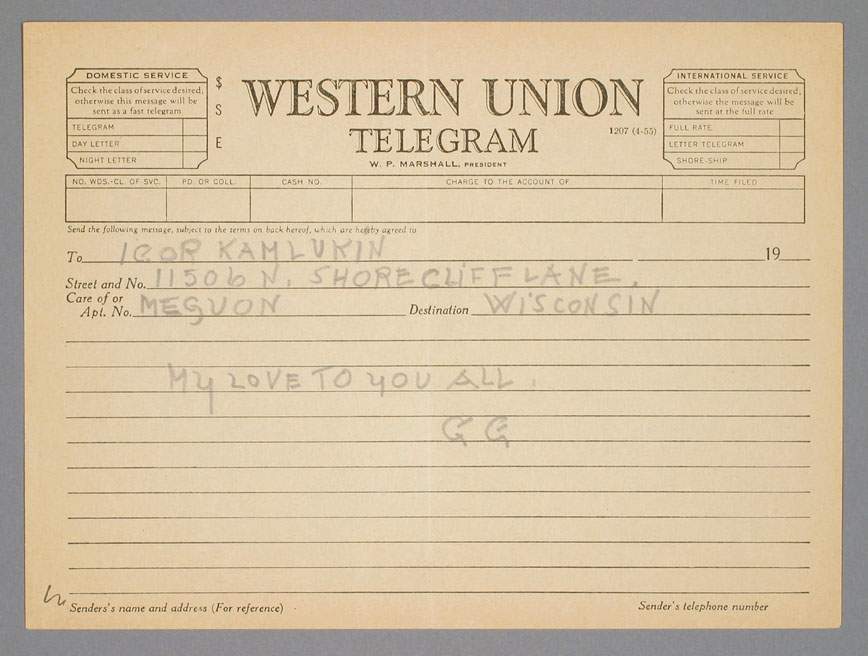 DOMESTIC SERVICE
Check the class of service desired;
otherwise this message will be
sent as a fast telegram
TELEGRAM
DAY LETTER
NIGHT LETTER
$
S
E
WESTERN UNION
TELEGRAM
1207 (4-55)
W. P. MARSHALL, PRESIDENT
INTERNATIONAL SERVICE
Check the class of service desired;
otherwise the message will be
sent at the full rate
FULL RATE
LETTER TELEGRAM
SHORE-SHIP
NO. WDS.-CL. OF SVC. PD. OR COLL. CASH NO. CHARGE TO THE ACCOUNT OF TIME FILED
Send the following message, subject to the terms on back hereof, which are hereby agreed to
To IGOR KAMLUKIN 19
Street and No. 11506 N. SHORECLIFF LANE.
Care of or
Apt. No. MEQUON Destination WISCONSIN
MY LOVE TO YOU ALL.
GG
Senders's name and address (For reference)
Sender's telephone number